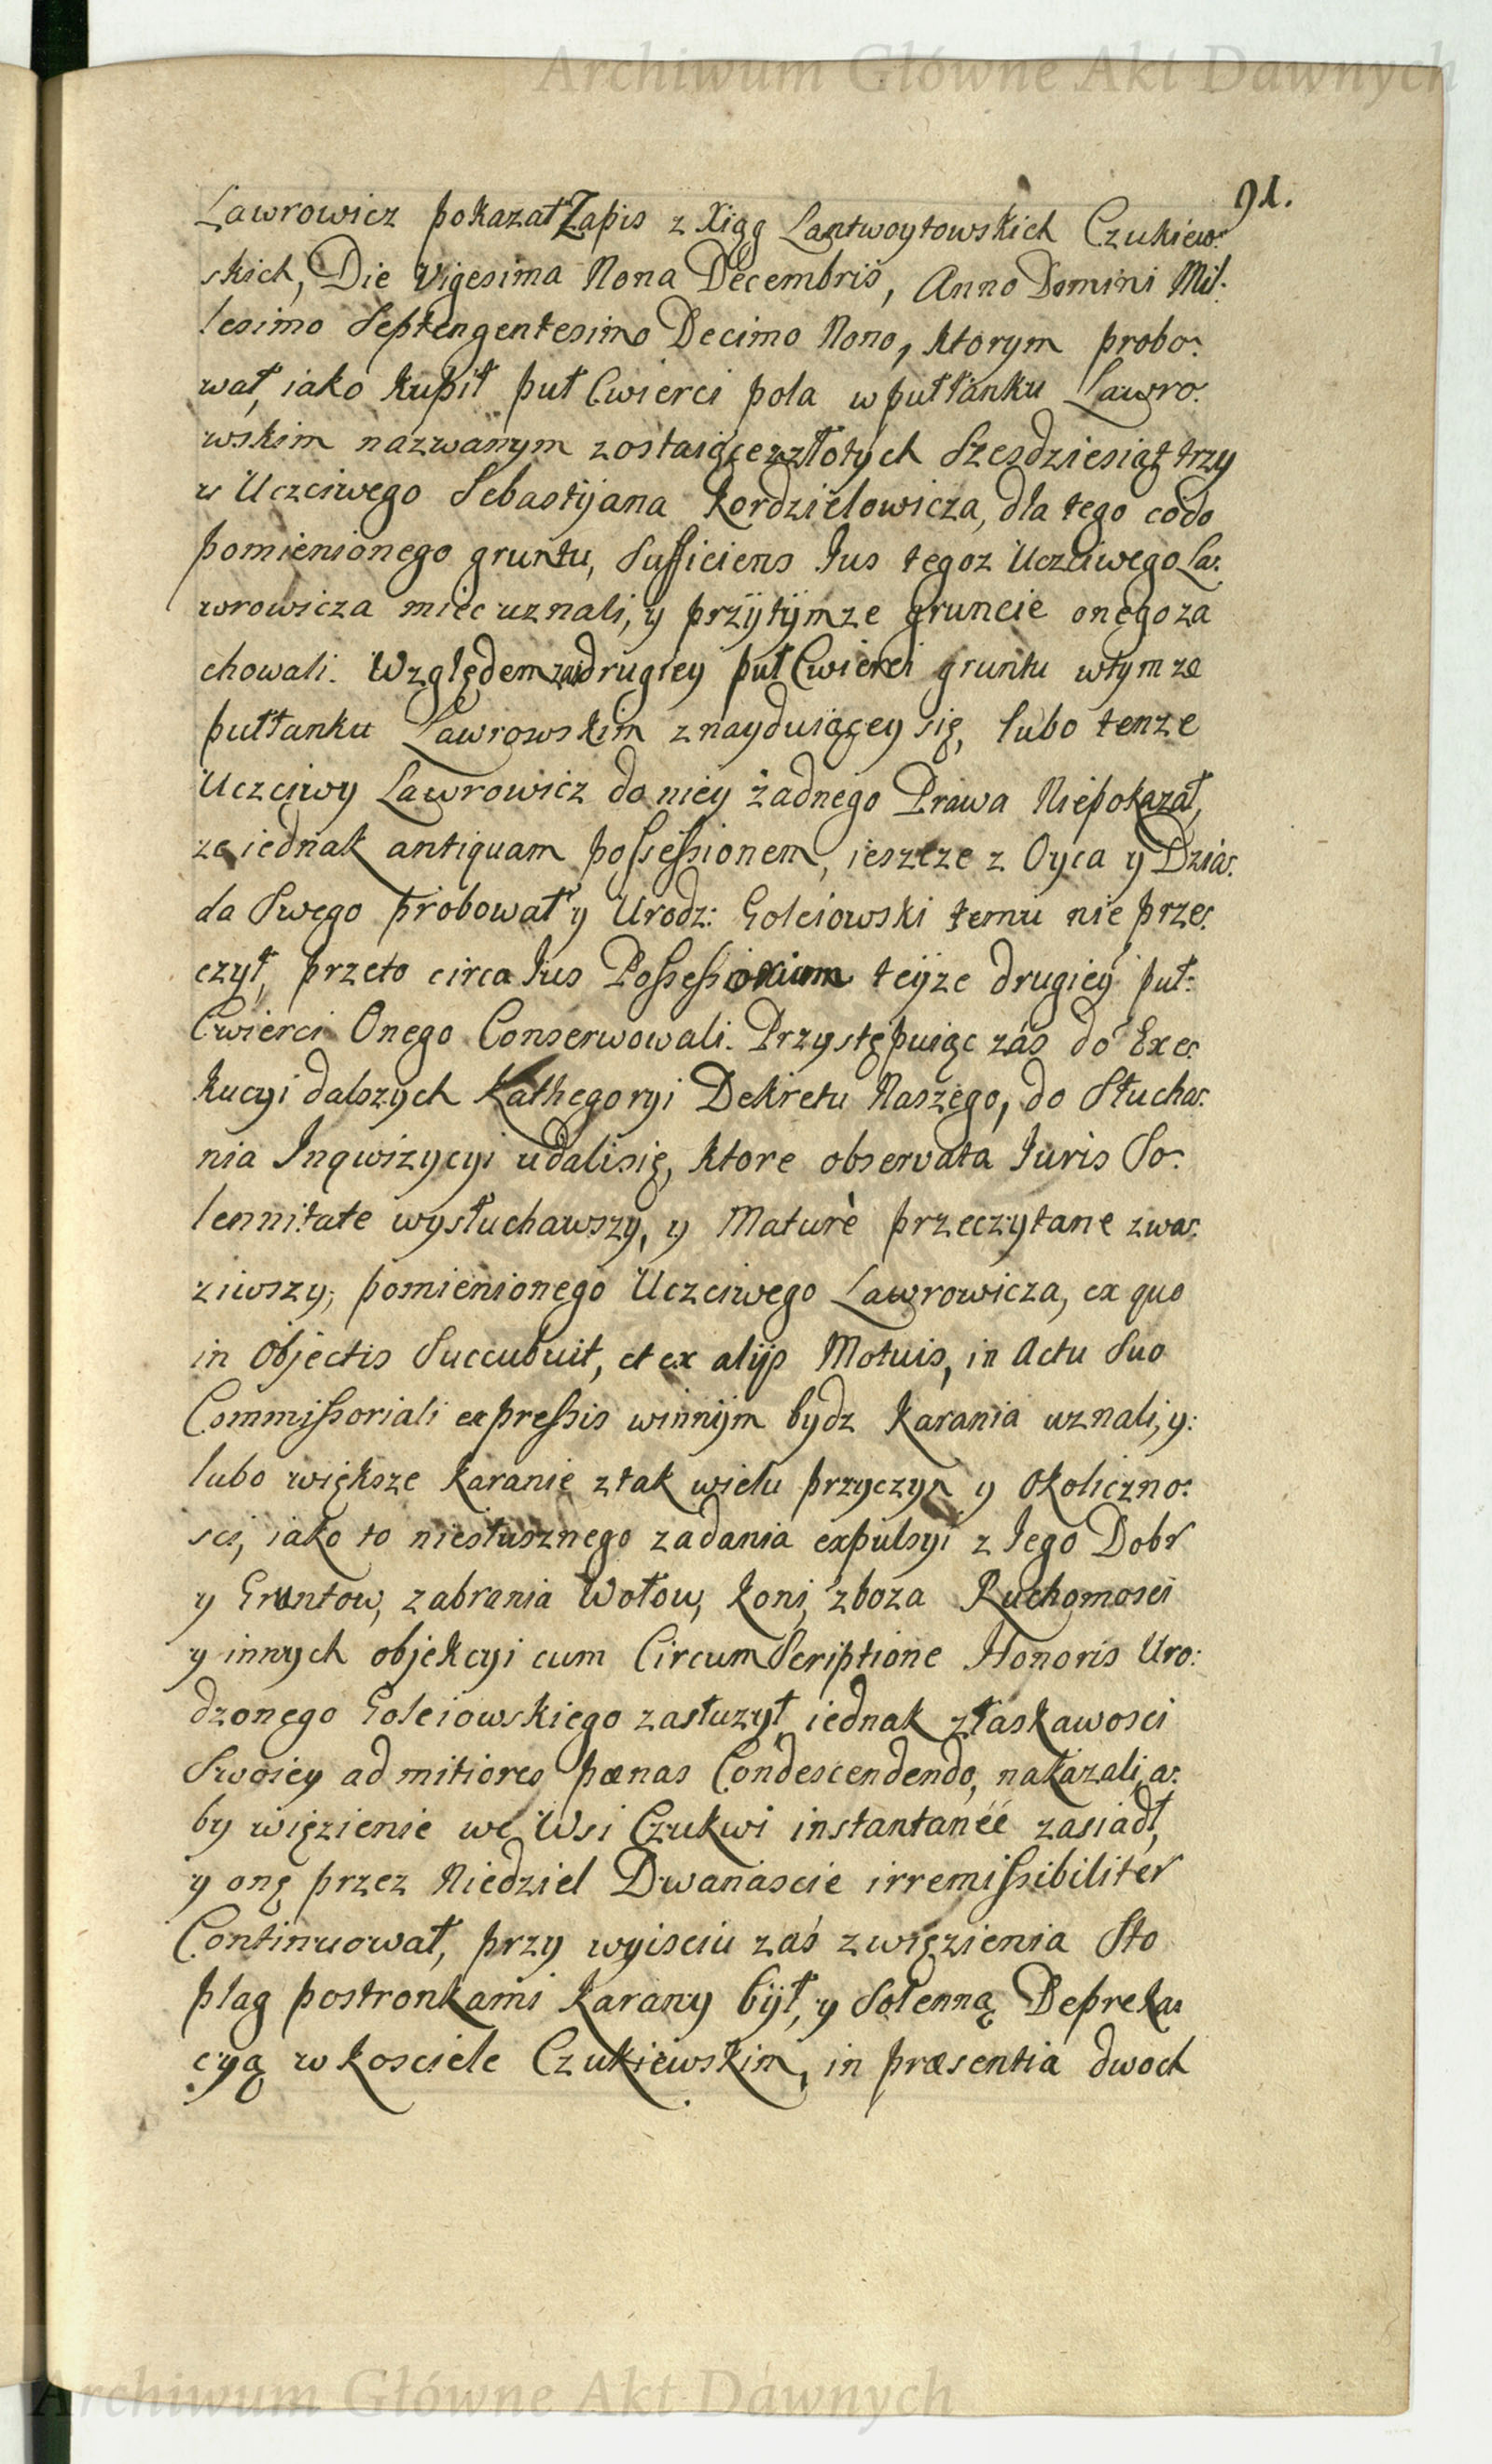 Archiwum Główne Akt Dawnych
91.
Lawrowicz pokazał Zapis z Xiąg Lantwoytowskich Czukiew:
skich, Die Vigesima Nona Decembris, Anno Domini Mil:
lesimo Septengentesimo Decimo Nono, ktorym probo:
wał, iako kupił puł Cwierci pola w pułłanku Lawro:
wskim nazwanym zostaiące zzłotych Szesdziesiąt trzy
u Uczciwego Sebastyjana Kordzielowicza, dla tego co do
pomienionego gruntu, Sufficiens Jus tegoz Uczciwego La:
wrowicza miec uznali, y przÿ tÿmze gruncie onego za
chowali. Względem zaś drugiey puł Cwierci gruntu w tym ze
pułłanku Lawrowskim znayduiącey się, lubo tenze
Uczciwy Lawrowicz do niey żadnego Prawa Niepokazał,
ze iednak antiquam possessionem, ieszcze z Oyca y Dzia:
da Swego probował y Urodz: Goleiowski temu nie prze:
czył, przeto circa Jus Possessorium teÿze drugiey puł:
Cwierci Onego Conserwowali. Przystępuiąc záś do Exe:
kucyi dalszych Kathegoryi Dekretu Naszego, do Słucha:
nia Inqwizycyi udali się, ktore observata Juris So:
lennitate wysłuchawszy, y Maturè przeczytane zwa:
ziwszy, pomienionego Uczciwego Lawrowicza, ex quo
in Objectis Succubuit, et ex alijs Motuis, in Actu Suo
Commissoriali expressis winnÿm bydz Karania uznali, y:
lubo większe karanie z tak wielu przyczyn y Okoliczno:
sci, iako to niesłusznego zadania expulsyi z Jego Dobr
y Gruntow, zabrania Wołow, koni, zboza Ruchomosci
y innych objekcyi cum Circum Scriptione Honoris Uro:
dzonego Goleiowskiego zasłuzył, iednak z łaskawosci
Swoiey ad mitiores pœnas Condescendendo, nakazali, a:
by więzienie we Wsi Czukwi instantanéé zasiadł,
y onę przez Niedziel Dwanascie irremissibiliter
Continuował, przy wyisciu zaś z więzienia Sto
plag postronkami karany bÿł, y Solenną Depreka:
cyą w kosciele Czukiewskim, in præsentia dwoch
Archiwum Główne Akt Dawnych